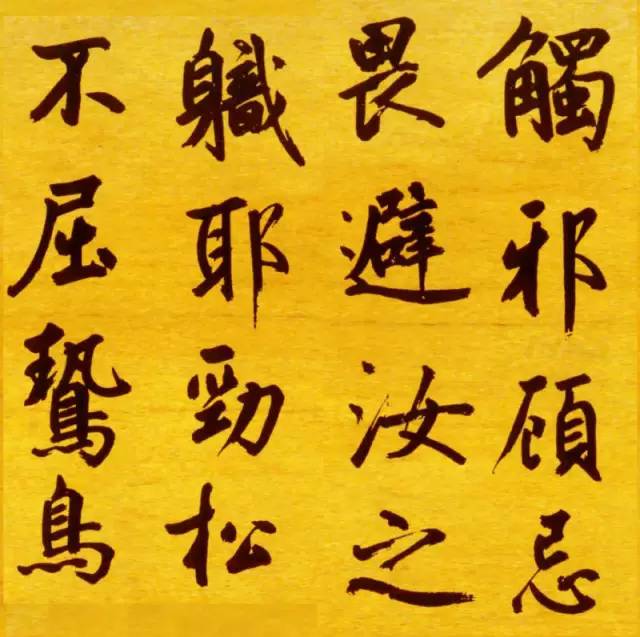 觸邪顧忌
畏避汝之
軄耶勁松
不屈鷙鳥